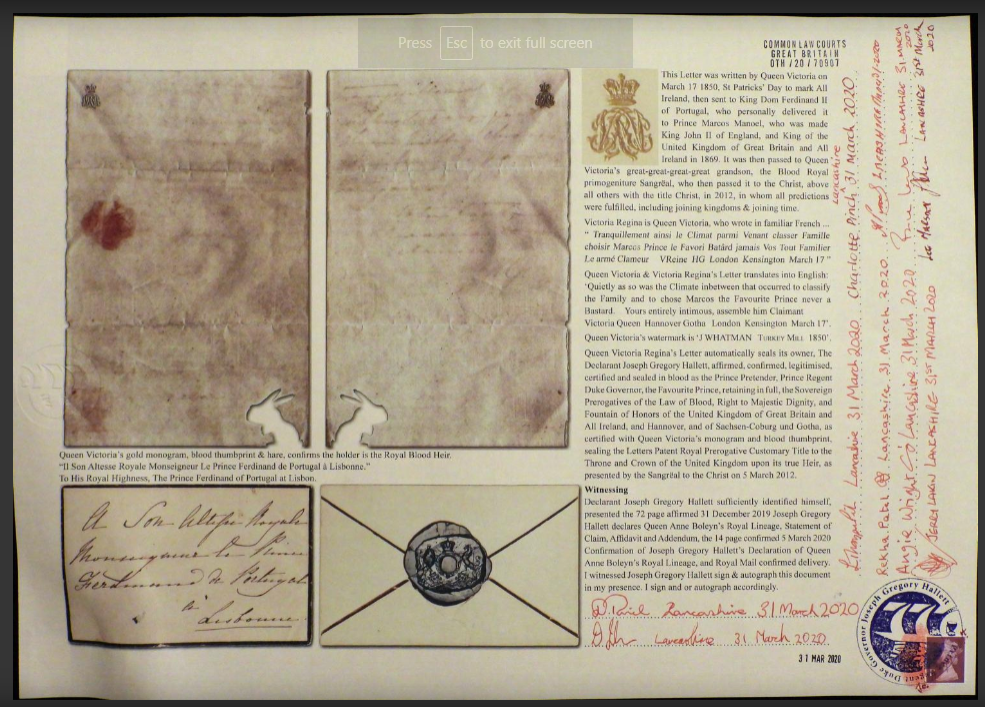 Press Esc to exit full screen
COMMON LAW COURTS
GREAT BRITAIN
OTH / 20 / 70907
This Letter was written by Queen Victoria on
March 17 1850, St Patricks' Day to mark All
Ireland, then sent to King Dom Ferdinand II
of Portugal, who personally delivered it
to Prince Marcos Manoel, who was made
King John II of England, and King of the
United Kingdom of Great Britain and All
Ireland in 1869. It was then passed to Queen
Victoria's great-great-great-great grandson, the Blood Royal
primogeniture Sangréal, who then passed it to the Christ, above
all others with the title Christ, in 2012, in whom all predictions
were fulfilled, including joining kingdoms & joining time.
Victoria Regina is Queen Victoria, who wrote in familiar French ...
" Tranquillement ainsi le Climat parmi Venant classer Famille
choisir Marcos Prince le Favori Batârd jamais Vos Tout Familier
Le armé Clameur VReine HG London Kensington March 17 "
Queen Victoria & Victoria Regina's Letter translates into English:
'Quietly as so was the Climate inbetween that occurred to classify
the Family and to chose Marcos the Favourite Prince never a
Bastard. Yours entirely intimous, assemble him Claimant
Victoria Queen Hannover Gotha London Kensington March 17'.
Queen Victoria's watermark is 'J WHATMAN TURKEY MILL 1850'.
Queen Victoria Regina's Letter automatically seals its owner, The
Declarant Joseph Gregory Hallett, affirmed, confirmed, legitimised,
certified and sealed in blood as the Prince Pretender, Prince Regent
Duke Governor, the Favourite Prince, retaining in full, the Sovereign
Prerogatives of the Law of Blood, Right to Majestic Dignity, and
Fountain of Honors of the United Kingdom of Great Britain and
All Ireland, and Hannover, and of Sachsen-Coburg und Gotha, as
certified with Queen Victoria's monogram and blood thumbprint,
sealing the Letters Patent Royal Prerogative Customary Title to the
Throne and Crown of the United Kingdom upon its true Heir, as
presented by the Sangréal to the Christ on 5 March 2012.
Witnessing
Declarant Joseph Gregory Hallett sufficiently identified himself,
presented the 72 page affirmed 31 December 2019 Joseph Gregory
Hallett declares Queen Anne Boleyn's Royal Lineage, Statement of
Claim, Affidavit and Addendum, the 14 page confirmed 5 March 2020
Confirmation of Joseph Gregory Hallett's Declaration of Queen
Anne Boleyn's Royal Lineage, and Royal Mail confirmed delivery.
I witnessed Joseph Gregory Hallett sign & autograph this document
in my presence. I sign and or autograph accordingly.
Lancashire 31 March 2020
Lancashire 31 March 2020
31 MAR 2020
Queen Victoria's gold monogram, blood thumbprint & hare, confirms the holder is the Royal Blood Heir.
"Il Son Altesse Royale Monseigneur Le Prince Ferdinand de Portugal à Lisbonne."
To His Royal Highness, The Prince Ferdinand of Portugal at Lisbon.
A Son Altesse Royale
Monseigneur le Prince
Ferdinand de Portugal
à
Lisbonne.
Lancashire 31 March 2020 Charlotte Pinch 31 March 2020
Lancashire
Rekha Patel Lancashire 31 March 2020
Angie Wright Lancashire 31 March 2020
Lancashire 31 March 2020
JERRY LAKIN LANCASHIRE 31ST MARCH 2020
LANCASHIRE 31st March 2020
Duke Governor Joseph Gregory Hallett